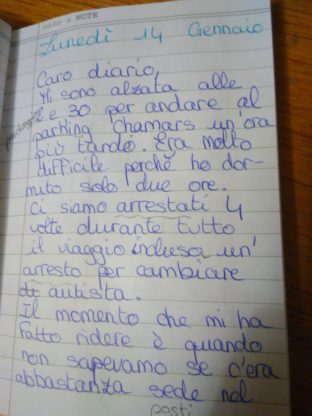 MAKE A NOTE
Lunedì 14 Gennaio
Caro diario,
Mi sono alzata alle
2 e 30 per andare al
parking Chamars un'ora
più tardo. Era molto
difficile perché ho dor-
mito solo due ore.
Ci siamo arrestati 4
volte durante tutto
il viaggio incluso un'
arresto per cambiare
di autista.
Il momento che mi ha
fatto ridere è quando
non sapevamo se c'era
abbastanza sede nel
posti